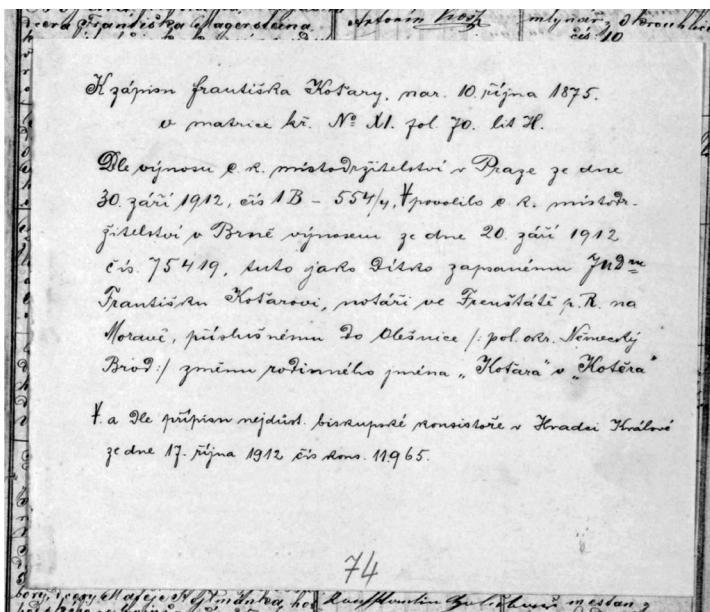 dcera Františka Magersteina
Antonín
mlynář z Okrouhlice
čís. 10
K zápisu františka Koťary, nar. 10. října 1875.
v matrice kř. No XI. fol. 70. lit H.
Dle výnosu c. k. místodržitelství v Praze ze dne
30. září 1912, čís 1B – 554/4, ꟻ povolilo c. k. místodr-
žitelství v Brně výnosem ze dne 20. září 1912
čís. 75419, tuto jako dítko zapsanému JuDru
Františku Koťarovi, notáři ve Frenštátě p. R. na
Moravě, příslušnému do Olešnice /: pol. okr. Německý
Brod :/ změnu rodinného jména „Koťara" v „Kotěra"
ꟻ. a dle přípisu nejdůst. biskupské konsistoře v Hradci Králové
ze dne 17. října 1912 čís kons. 11.965.
74
dcery Matěje